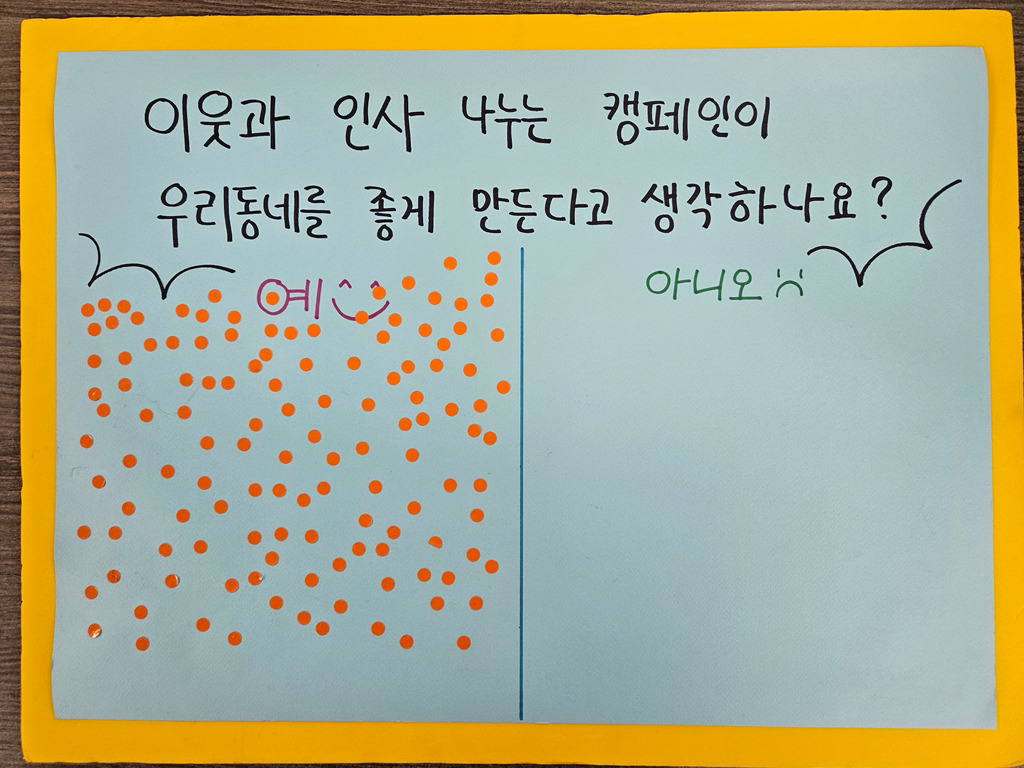 이웃과 인사 나누는 캠페인이
우리동네를 좋게 만든다고 생각하나요?
예
아니오